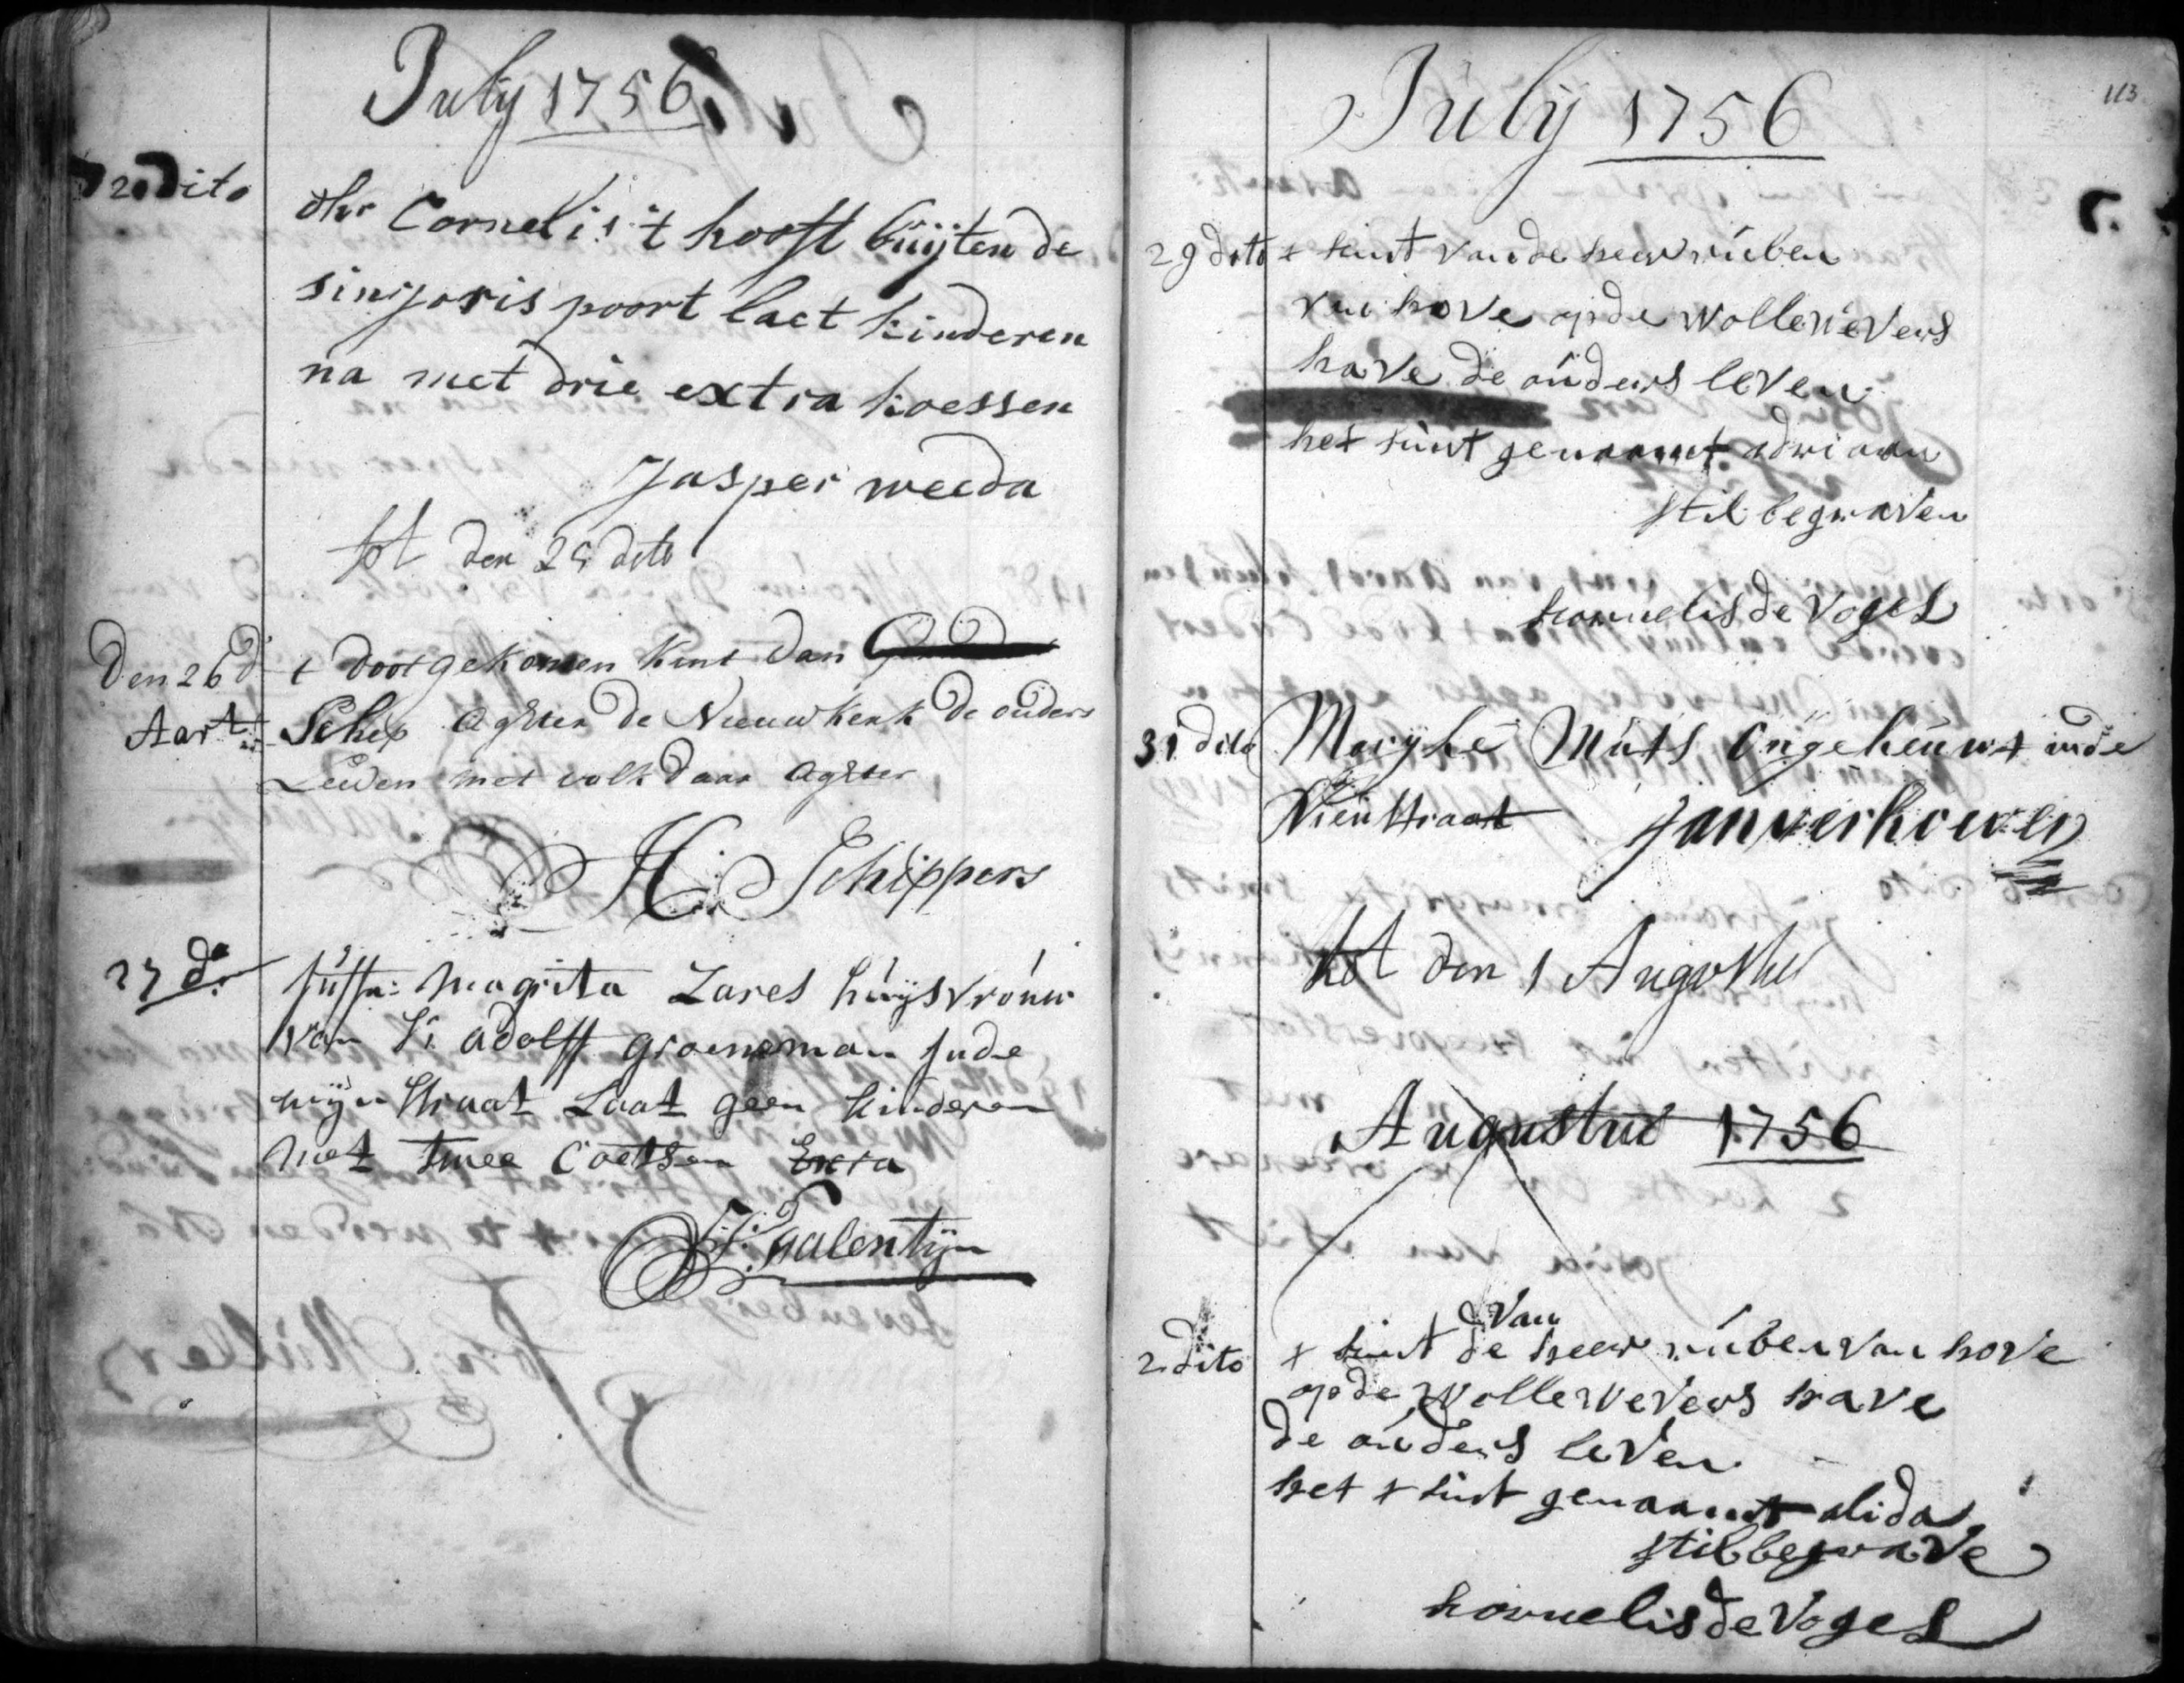 July 1756
20 Dito
dhr Cornelis 't hooft buijten de
singoris poort laet kinderen
na met drie extra koessen
Jasper weeda
tot den 25 dito
Den 26 d t dootgekomen kint van
Aart Schep agter de Nieuwkerk de ouders
Leeven met volk daar agter
H. Schippers
27 d.o Juffr: Magrita Lares huijsvrouw
van Sr adolff groeneman Inde
wijn straat Laat geen kinderen
met twee Coetsen Extra
J. Valentijn
113
July 1756
29 dito t kint van de heer rúben
van hove op de wollewevers
have de oúders leven
het kint genaamt adriaan
stil begraven
kornelis de Vogel
31 dito Marijke Múts ongeheúwt inde
Nieustraat Jan verhoeven
tot den 1 Augustus
Augustus 1756
van
2 dito t kint de heer rúben van hove
op de wollewevers have
de oúders leven
het t kint genaamt alida
stil begrave
kornelis de Vogel